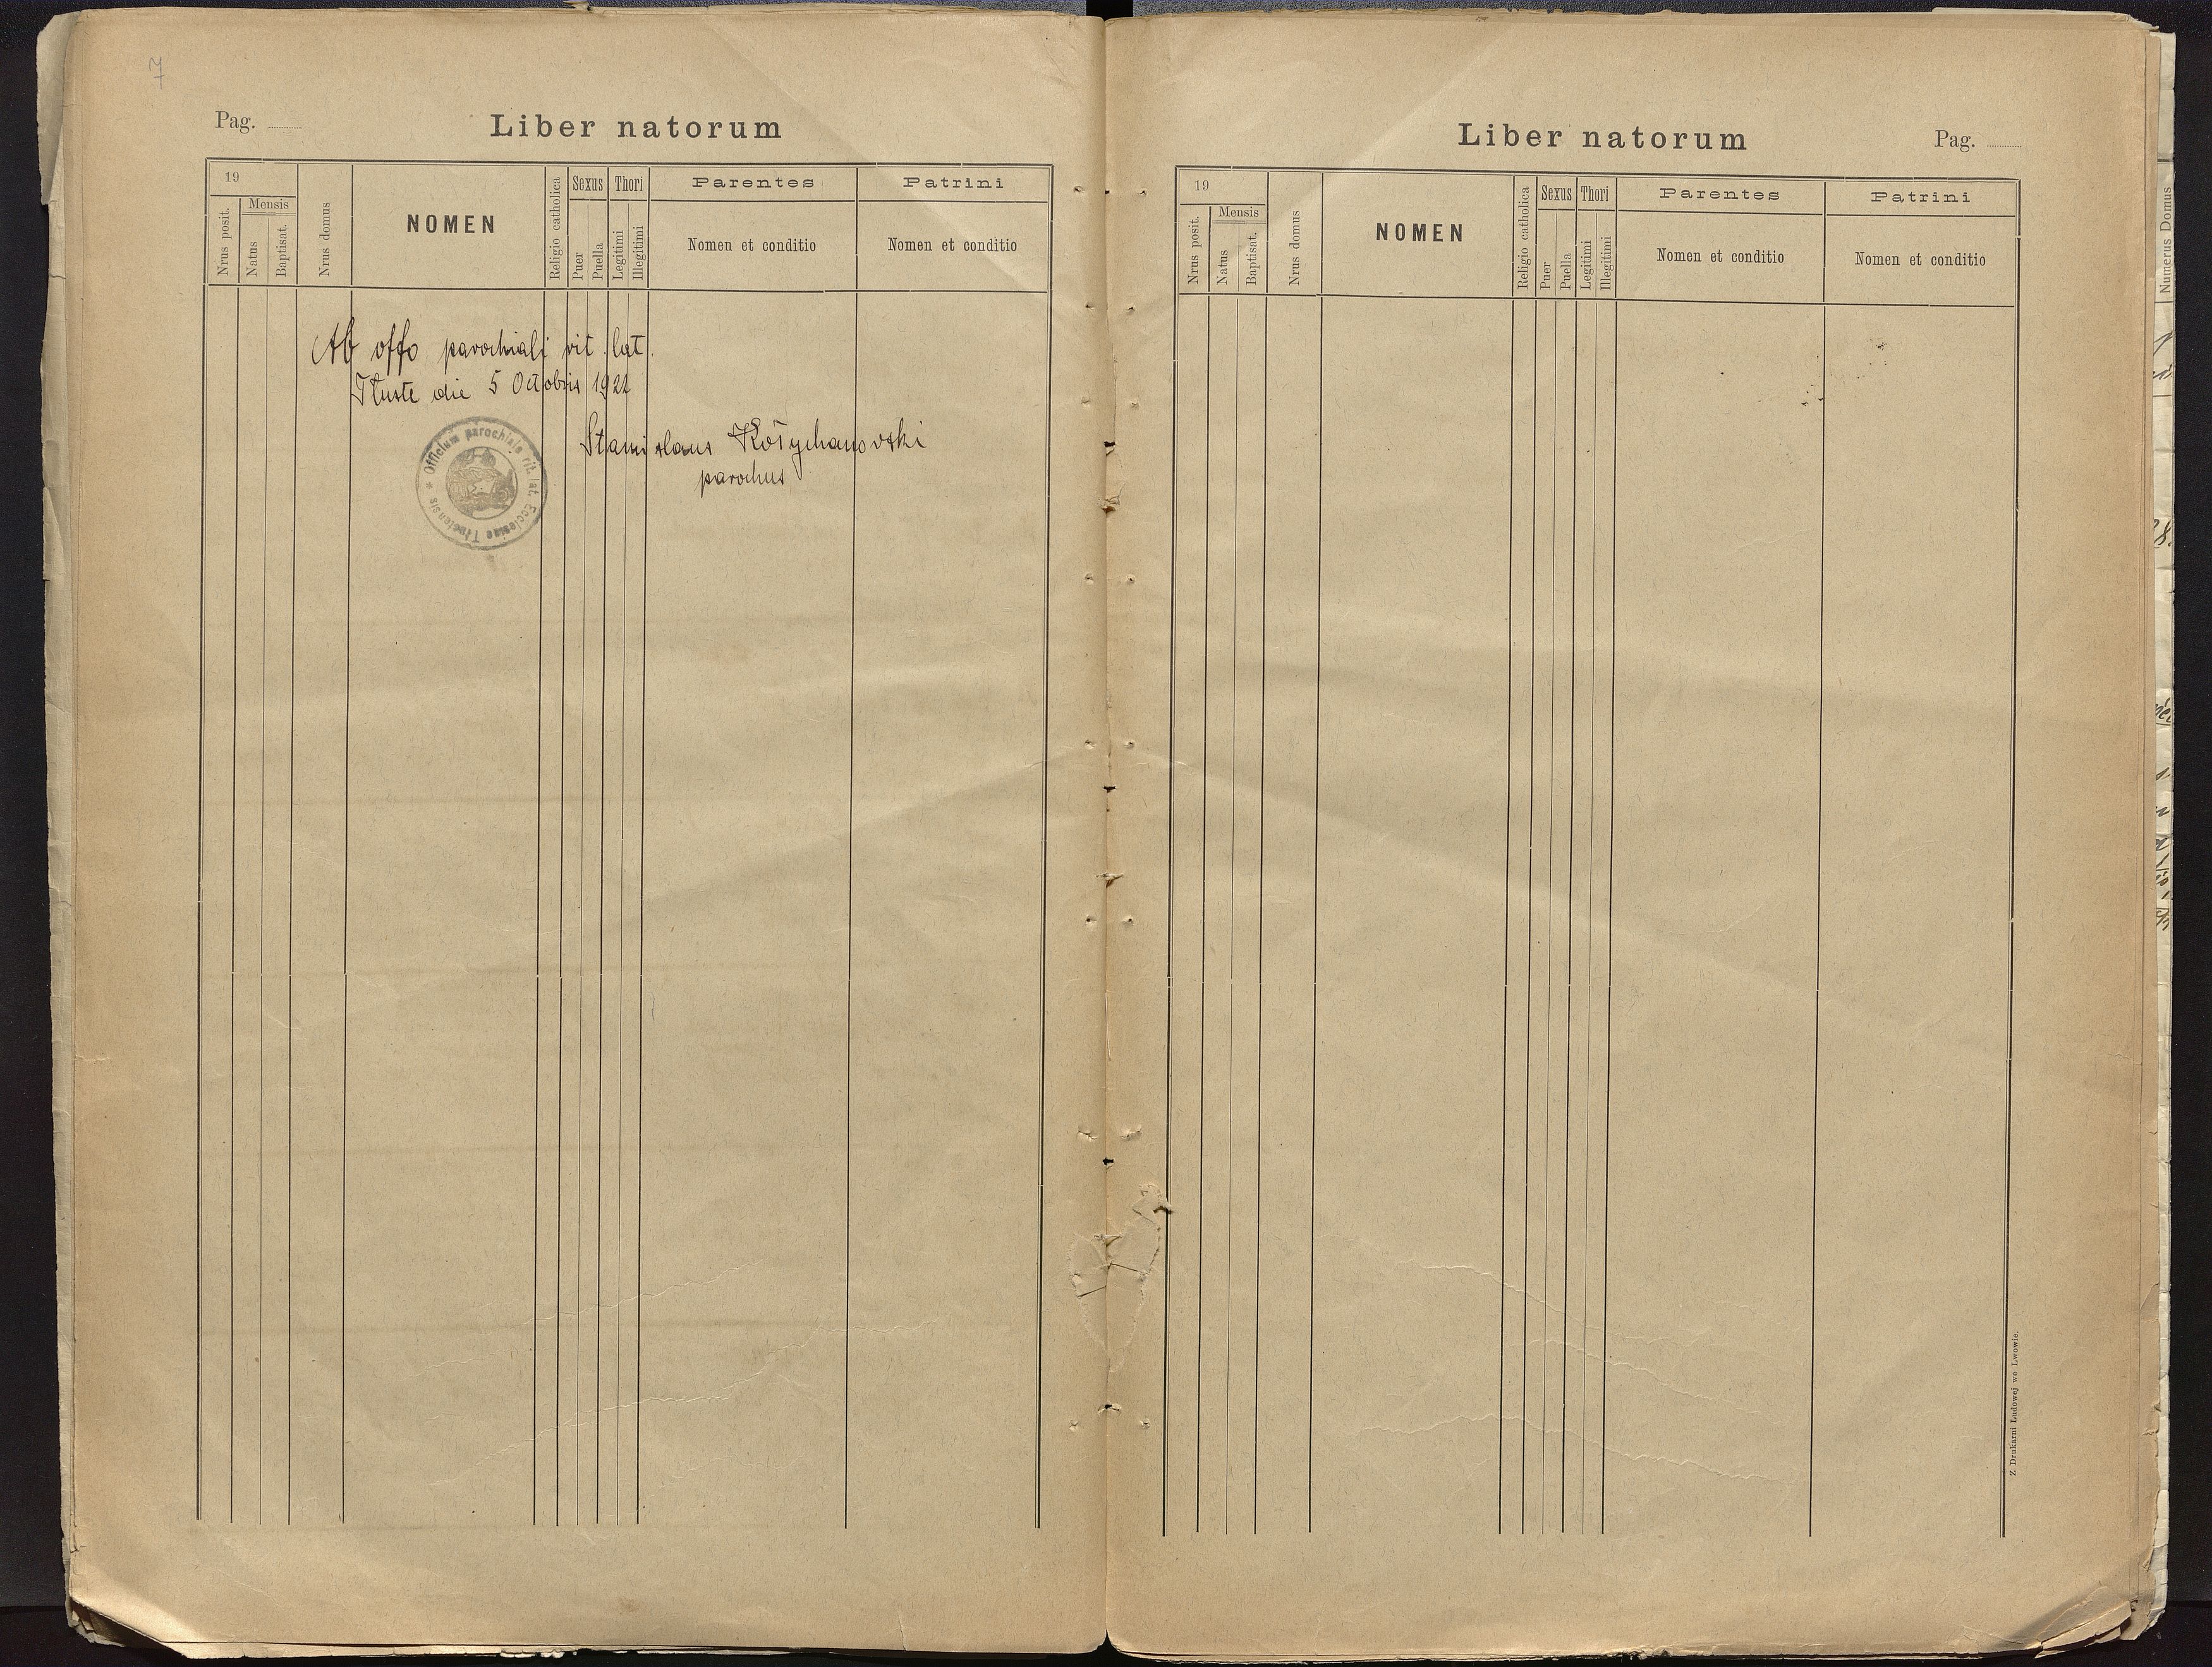 7
Pag.
Liber natorum
19
Mensis
Nrus posit.
Natus
Baptisat.
Nrus domus
NOMEN
Religio catholica
Sexus
Puer
Puella
Thori
Legitimi
Illegitimi
Parentes
Nomen et conditio
Patrini
Nomen et conditio
Ab offo parochiali rit. lat.
Tłuste die 5 Octobris 1921
Stanislaus
parochus
Officium parochiale rit. lat. Ecclesiae
Liber natorum
Pag.
19
Mensis
Nrus posit.
Natus
Baptisat.
Nrus domus
NOMEN
Religio catholica
Sexus
Puer
Puella
Thori
Legitimi
Illegitimi
Parentes
Nomen et conditio
Patrini
Nomen et conditio
Z Drukarni Ludowej we Lwowie.
Numerus Domus